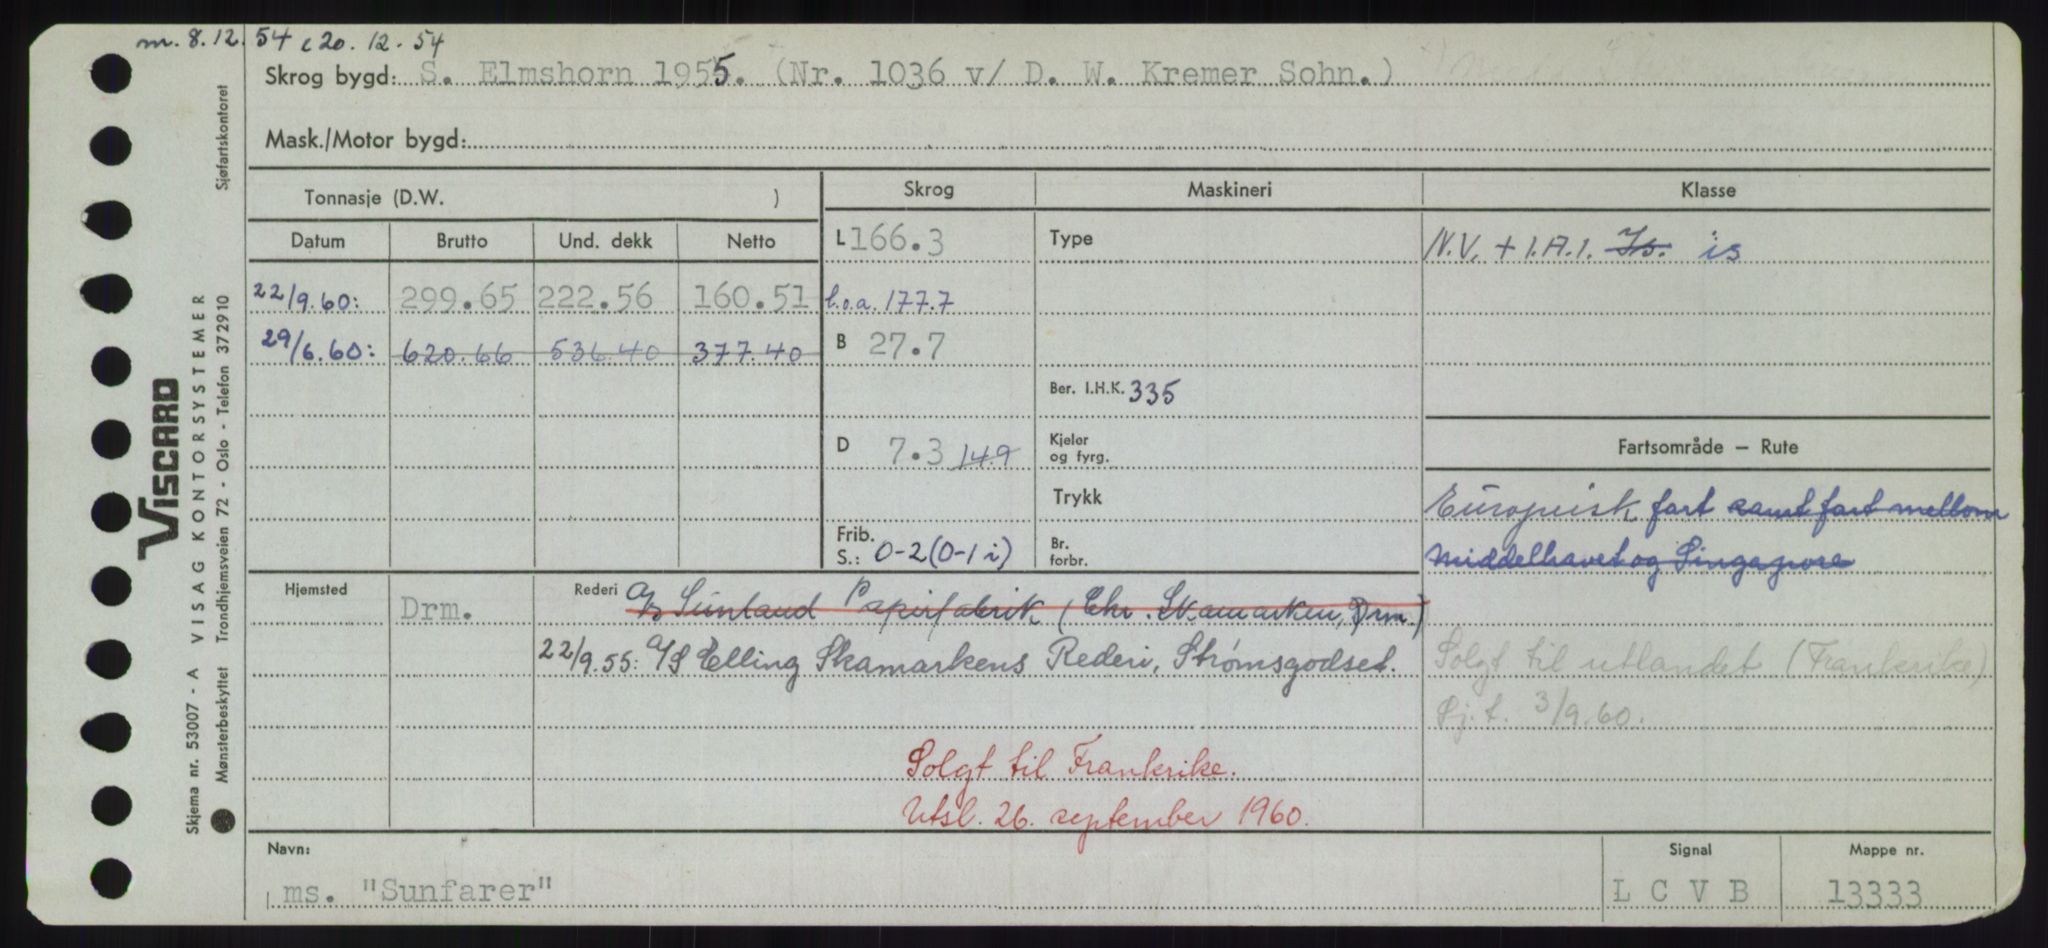 m. 8.12.54 c 20.12.54
Skrog bygd: S. Elmshorn 1955. (Nr. 1036 v/ D. W. Kremer Sohn.)
Mask./Motor bygd:
Tonnasje (D.W. ) Skrog Maskineri Klasse
Datum Brutto Und. dekk Netto L 166.3 Type N.V. + 1.A.1. Is. is
22/9.60: 299.65 222.56 160.51 l.o.a. 177.7
29/6.60: 620.66 536.40 377.40 B 27.7
Ber. I.H.K. 335
D 7.3 14.9 Kjeler og fyrg. Fartsområde — Rute
Trykk Europeisk fart samt fart mellom
Frib. S.: 0-2 (0-1 i) Br. forbr. Middelhavet og Singapore
Hjemsted Drm. Rederi A/S Sunland Papirfabrik (Chr. Skamarken, Drm.)
22/9.55: A/S Elling Skamarkens Rederi, Strømsgodset. Solgt til utlandet (Frankrike)
Sj.t. 3/9.60.
Solgt til Frankrike.
Utsl. 26. september 1960.
Navn: Signal Mappe nr.
ms. "Sunfarer" L C V B 13333
VISCARD
Skjema nr. 53007 - A VISAG KONTORSYSTEMER
Mønsterbeskyttet Trondhjemsveien 72 - Oslo - Telefon 372910 Sjøfartskontoret